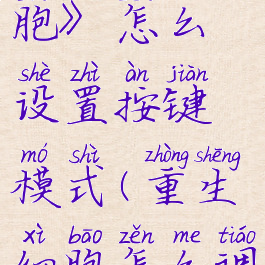 胞》怎么
shè zhì àn jiàn
设置按键
mó shì zhòng shēng
模式(重生
xì bāo zěn me tiáo
细胞怎么调